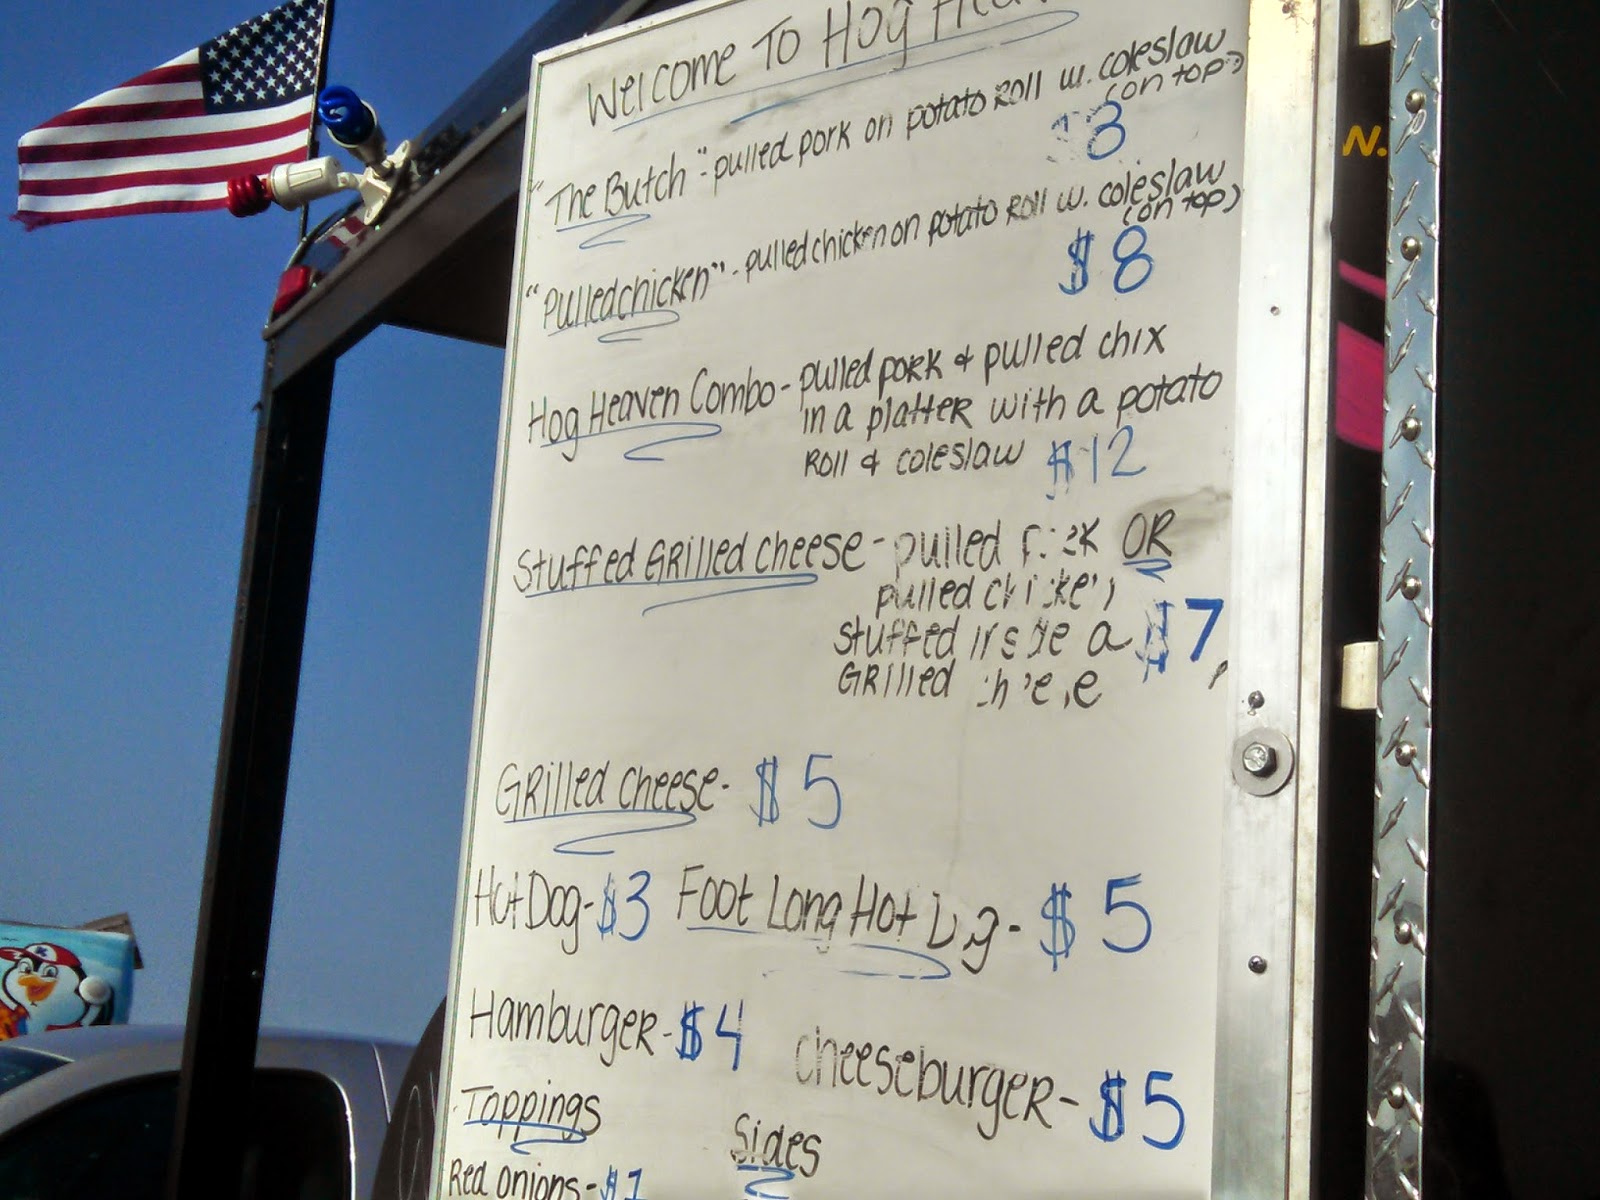 Welcome To Hog
"The Butch" - pulled pork on potato Roll w. coleslaw
(on top)
$8
"Pulled chicken" - pulled chicken on potato Roll w. coleslaw
(on top)
$8
Hog Heaven Combo - pulled pork & pulled chix
in a platter with a potato
Roll & coleslaw $12
Stuffed Grilled Cheese - pulled pork OR
pulled chicken
stuffed inside a $7
Grilled cheese
Grilled Cheese - $5
Hot Dog - $3 Foot Long Hot Dog - $5
Hamburger - $4 cheeseburger - $5
Toppings Sides
Red onions - $1
N.